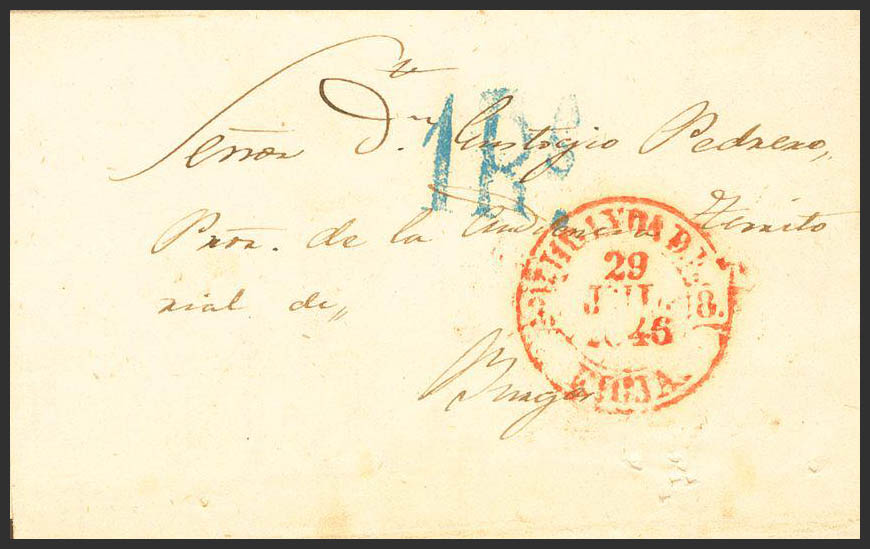 Señor Dn. Eustogio Pedrero,,
Pror. de la Audiencia Territo
rial de,,
Burgos
1Rs.
29
JUL.
1846
18.
RIOJA.